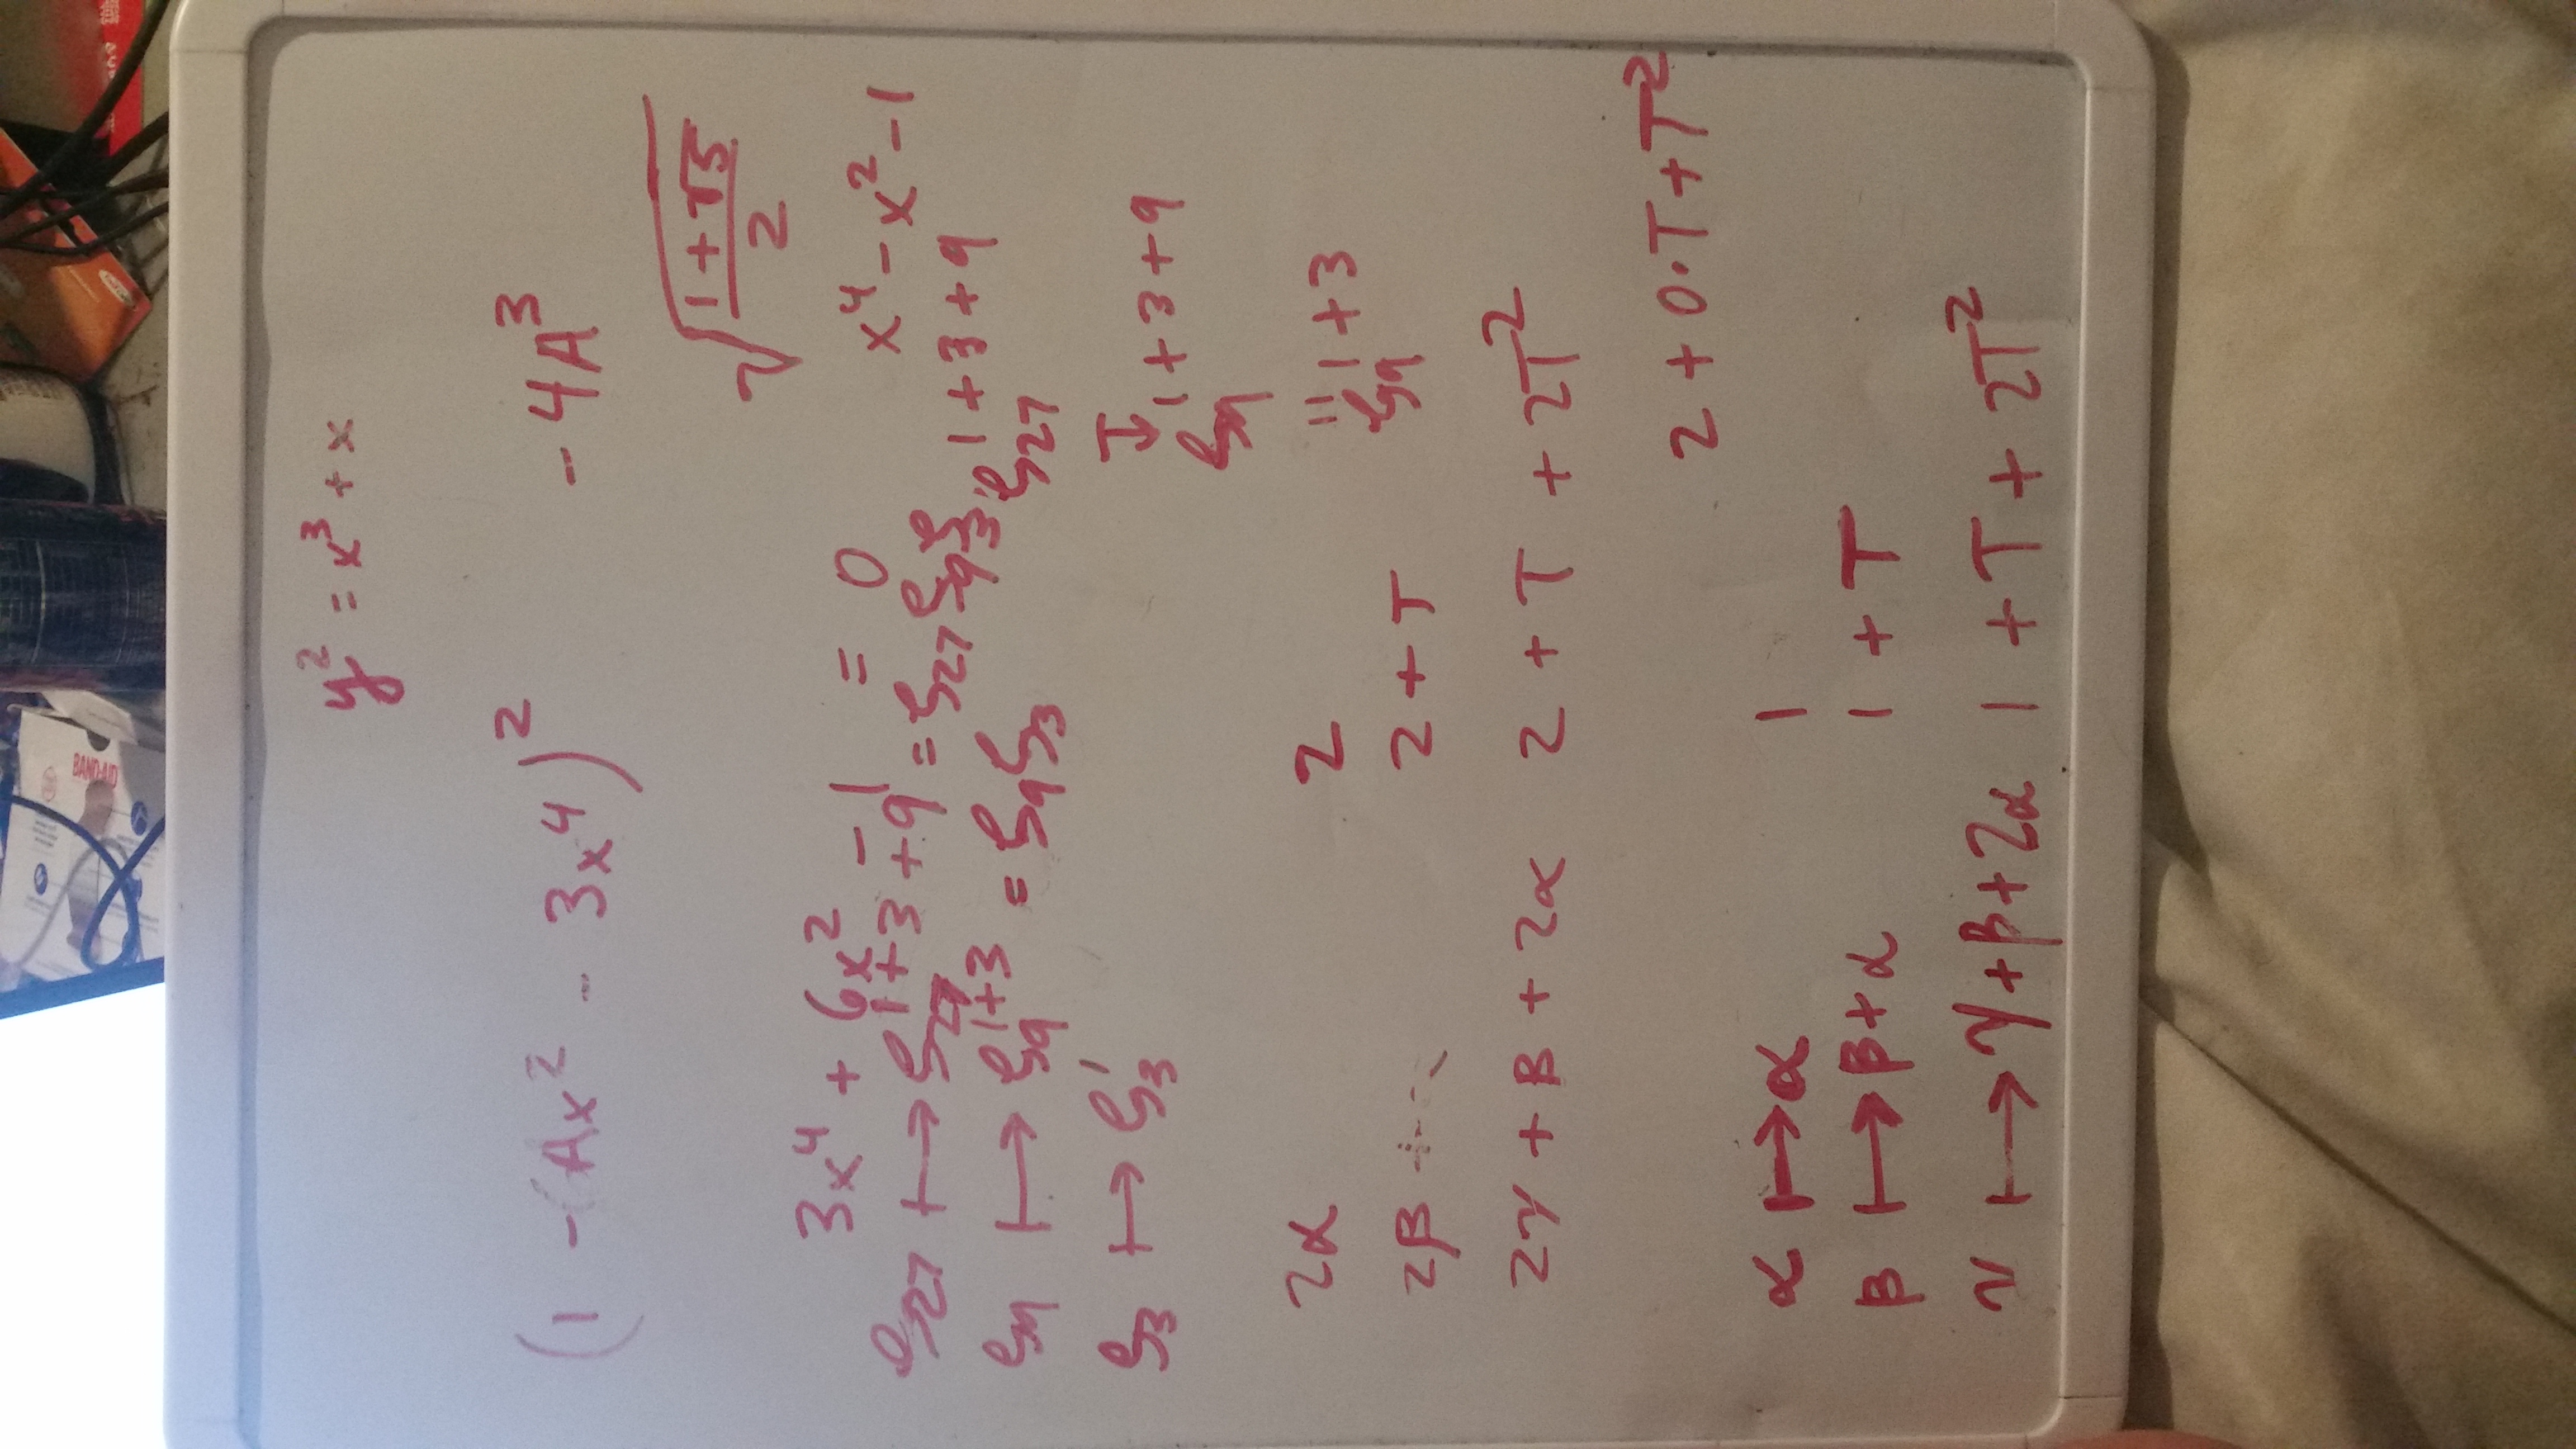 BAND-AID
y² = x³ + x
(1 - Ax² - 3x⁴)² -4A³
√((1+√5)/2)
3x⁴ + 6x² - 1 = 0
x⁴ - x² - 1
ζ₂₇ ↦ ζ₂₇^(1+3+9) = ζ₂₇ζ₉ζ₃
ζ₂₇^(1+3+9)
ζ₉ ↦ ζ₉^(1+3) = ζ₉ζ₃
↧
ζ₃ ↦ ζ₃^1
ζ₉^(1+3+9)
2α 2
॥
ζ₉^(1+3)
2β 2 + T
2γ + β + 2α 2 + T + 2T²
2 + 0·T + T²
α ↦ α 1
β ↦ β+α 1 + T
γ ↦ γ+β+2α 1 + T + 2T²